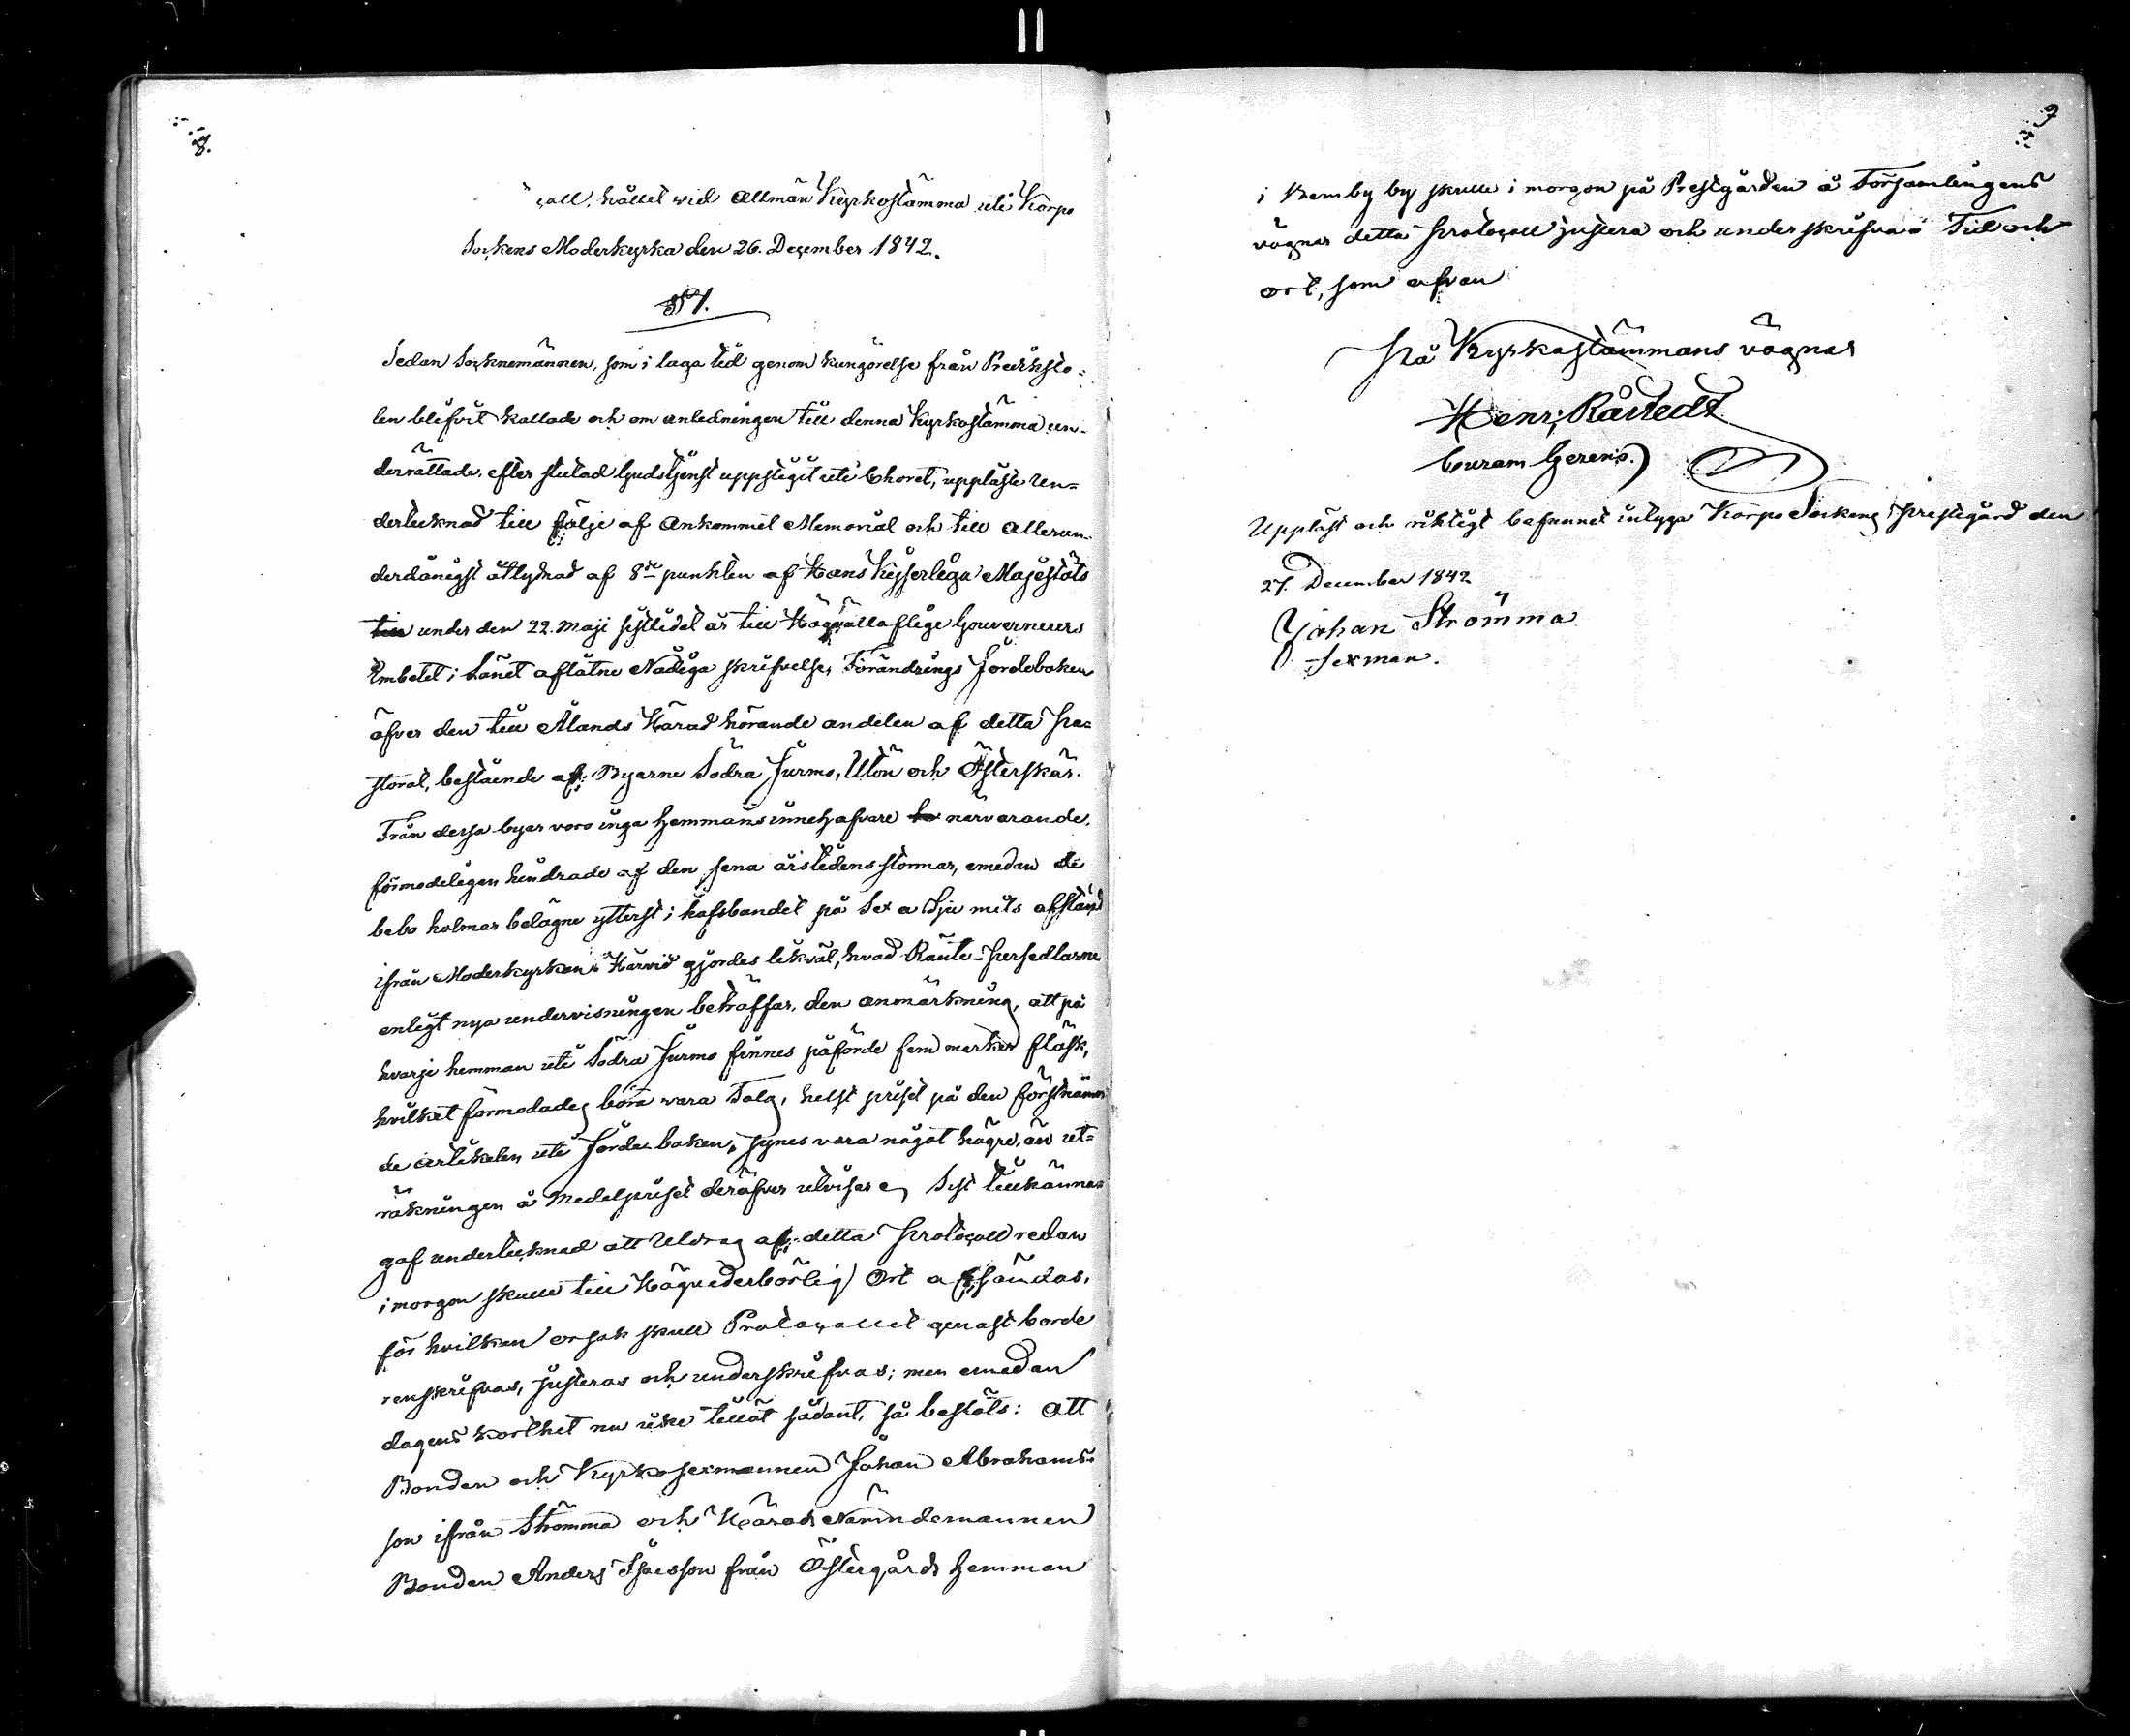 8.
coll, hållet wid Allmän Kyrkostämma uti Korpo
Sockens Moderkyrka den 26. December 1842.
§ 1.
Sedan Socknemännen, som i laga tid genom kungörelse från Prediksto-
len blifvit kallade och om anledningen till denna Kyrkostämma un-
derrättade, efter slutad Gudstjenst uppstigit uti Choret, uppläste Un-
dertecknad till följe af ankommit Memorial och till allerun-
derdånigst åtlydnad af 8de punkten af Hans Kejserliga Majestäts
till under den 22. Maji sistlidet år till Höguällaflige Gouverneurs
Embetet i Länet aflåtne Nådiga skrifvelse, Förändrings Jordeboken
öfver den till Ålands Härad hörande andelen af detta Pa-
storat, bestående af: Byarne Södra Jurmo, Utön och Österskär.
Från dessa byar voro inga Hemmans innehafvare ha närvarande,
förmodeligen hindrade af den sena årstidens stormar, emedan de
bebo holmar belägne ytterst i hafsbandet på Sex a Sju mils afstånd
ifrån Moderkyrkan. Härvid gjordes likväl, hvad Ränte-Persedlarne
enligt nya undervisningen beträffar, den anmärkning, att på
hvarje hemman uti Södra Jurmo finnes påförde fem marker fläsk,
hvilket förmodades böra vara Talg, helst priset på den förstnämn-
de artikeln uti Jorde-boken, synes vara något högre, än ut-
räkningen å Medelpriset deröfver utvisar. Sist tillkänna-
gaf undertecknad att Utdrag af detta Protocoll redan
i morgon skulle till Högvederbörlig Ort afsändas,
för hvilken orsak skull Protocollet genast borde
renskrifvas, justeras och underskrifvas; men emedan
dagens korthet nu icke tillät sådant, så beslöts: att
Bonden och Kyrkosexmannen Johan Abrahams-
son ifrån Strömma och Härads Nämndemannen
Bonden Anders Isacsson från Östergårds Hemman
9
i Bemby by skulle i morgon på Prestgården å Församlingens
vägnar detta Protocoll justera och underskrifva. Tid och
ort, som ofvan
På Kyrkostämmans vägnar
Henr; Råstedt
Curam Gerens.)
Uppläst och riktigt befunnet intyga Korpo Sockens Prestegård den
27. December 1842
Johan Strömma
Sexman.